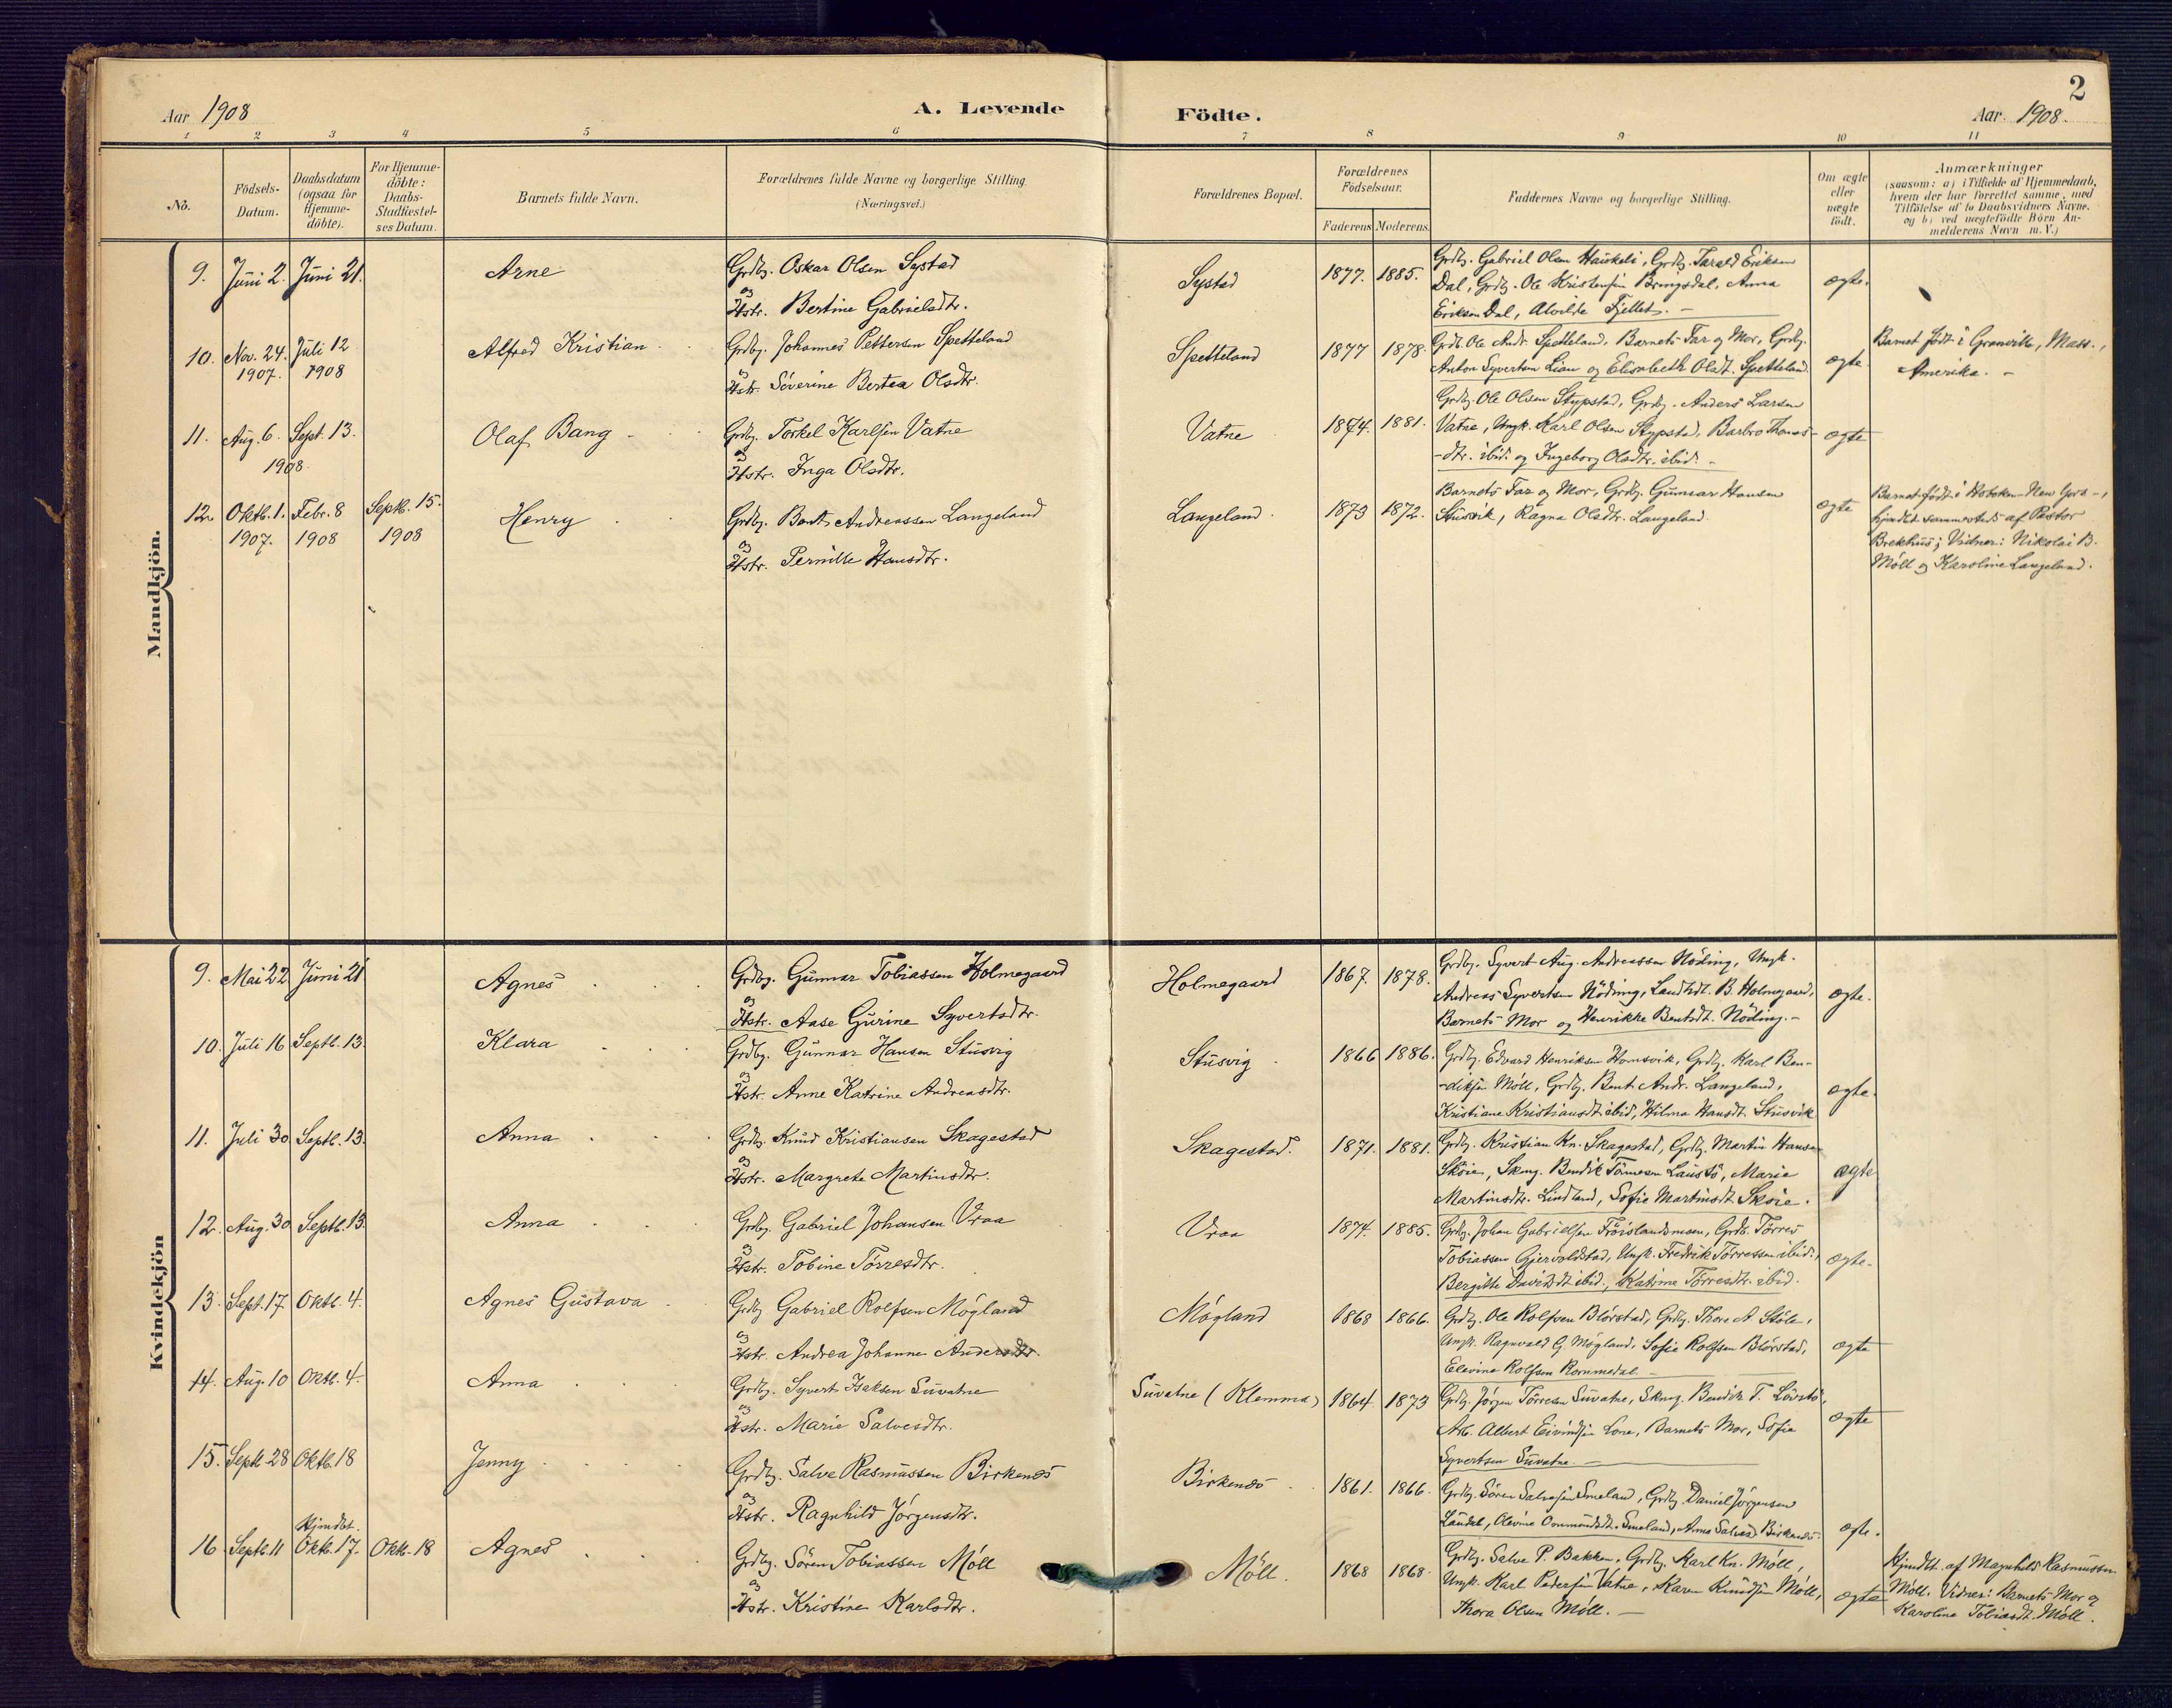 2
Aar 1908
A. Levende
Födte.
Aar 1908.
1 2 3 4 5 6 7 8 9 10 11
No.
Födsels-
Datum.
Daabsdatum
(ogsaa for
Hjemme-
döbte).
For Hjemme-
döbte:
Daabs-
Stadfæstel-
ses Datum.
Barnets fulde Navn.
Forældrenes fulde Navne og borgerlige Stilling.
(Næringsvei.)
Forældrenes Bopæl.
Forældrenes
Födselsaar.
Faderens Moderens
Faddernes Navne og borgerlige Stilling.
Om ægte
eller
uægte
födt.
Anmærkninger
(saasom: a) i Tilfælde af Hjemmedaab,
hvem der har forrettet samme, med
Tilföielse af to Daabsvidners Navne,
og b) ved uægtefödte Börn An-
melderens Navn m. V.)
Mandkjön.
9. Juni 2. Juni 21. Arne
Grdbg. Oskar Olsen Systad
og
Hstr. Bertine Gabrielsdtr.
Systad 1877. 1885.
Grdbg. Gabriel Olsen Haukeli, Grdbg. Tarald Eriksen
Dal, Grdbg. Ole Kristensen Bringsdal. Anna
Eriksen Dal, Alvilde Fjellet. -
ægte.
10. Nov. 24. 1907. Juli 12 1908 Alfred Kristian
Grdbg. Johannes Pettersen Spetteland
og
Hstr. Severine Bertea Olsdtr.
Spetteland 1877 1878.
Grdb. Ole Andr. Spetteland, Barnets Far og Mor, Grdbg.
Anton Syvertsen Lian og Elisabeth Olsdt. Spetteland.
ægte
Barnet födt i Granville, Mass.,
Amerika. -
11. Aug. 6. Sept. 13. 1908. Olaf Bang
Grdbg. Torkel Karlsen Vatne
og
Hstr. Inga Olsdtr.
Vatne 1874. 1881.
Grdbg. Ole Olsen Stypstad, Grdbg. Anders Larsen
Vatne, Ungk. Karl Olsen Stypstad, Barbro Thomas-
-dtr. ibid. og Ingeborg Olsdtr. ibid. -
ægte
12. Oktb. 1. 1907. Febr. 8 1908 Septb. 15. 1908 Henry
Grdbg. Bent Andreassen Langeland
og
Hstr. Pernille Hansdtr.
Langeland 1873 1872.
Barnets Far og Mor, Grdbg. Gunnar Hansen
Stusvik, Ragna Olsdtr. Langeland.
ægte
Barnet födt i Hoboken - New
hjmdbt. sammesteds af Pastor
Brekhus; Vidner: Nikolai B.
Möll og Karoline Langeland.
Kvindekjön
9. Mai 22 Juni 21 Agnes
Grdbg. Gunnar Tobiassen Holmegaard
og
Hstr. Aase Gurine Syvertsdtr.
Holmegaard 1867. 1878.
Grdbg. Syvert Aug. Andreassen Nöding, Ungk.
Andreas Syvertsen Nöding, B. Holmegaard,
Barnets Mor og Henrikke Bentsdt. Nöding. -
ægte.
10. Juli 16 Septb. 13. Klara
Grdbg. Gunnar Hansen Stusvig
og
Hstr. Anne Katrine Andreasdtr.
Stusvig 1866 1886.
Grdbg. Edvard Henriksen Homsvik, Grdbg. Karl Ben-
-diksen Möll, Grdbg. Bent Andr. Langeland,
Kristiane Kristiansdt. ibid, Hilma Hansdt. Stusvik
ægte.
11. Juli 30 Septb. 13. Anna
Grdbg. Knud Kristiansen Skagestad
og
Hstr. Margrete Martinsdtr.
Skagestad. 1871. 1881.
Grdbg. Kristian Kn. Skagestad, Grdbg. Martin Hansen
Skoie, Skmg. Bendik Tönnesen Laustö, Marie
Martinsdtr. Lindland, Sofie Martinsdt. Skoie.
ægte
12. Aug. 30 Septb. 13. Anna
Grdbg. Gabriel Johansen Vraa
og
Hstr. Tobine Törresdtr.
Vraa 1874. 1885.
Grdbg. Johan Gabrielsen Fröislandsmoen, Grdb. Törres
Tobiassen Gjervoldstad, Ungk. Fredrik Törressen ibid.,
Bergitte Davidsdt. ibid., Katrine Törresdtr. ibid.
ægte.
13. Sept. 17. Oktb. 4. Agnes Gustava
Grdbg. Gabriel Rolfsen Mögland
og
Hstr. Andrea Johanne Andersdtr.
Mögland 1868 1866.
Grdbg. Ole Rolfsen Blörstad, Grdbg. Thore A. Stöle,
Ungk. Ragnvald G. Mögland, Sofie Rolfsen Blörstad,
Elevine Rolfsen Rommedal. -
ægte
14. Aug. 10 Oktb. 4. Anna
Grdbg. Syvert Isaksen Suvatne
og
Hstr. Marie Salvesdtr.
Suvatne (Klemma) 1864. 1873
Grdbg. Jörgen Törresen Suvatne, Skmg. Bendik T. Lövstö,
Arb. Albert Eivindsen Lone, Barnets Mor, Sofie
Syvertsen Suvatne. -
ægte
15. Septb. 28 Oktb. 18 Jenny
Grdbg. Salve Rasmussen Birkenes
og
Hstr. Ragnhild Jörgensdtr.
Birkenes 1861. 1866.
Grdbg. Sören Salvesen Smeland, Grdbg. Daniel Jörgensen
Laudal, Olevine Ommundsdt. Smeland, Anna Salvesd. Birkenes.
ægte.
16. Septb. 11 Hjmdbt. Oktb. 17. Oktb. 18 Agnes
Grdbg. Sören Tobiassen Möll
og
Hstr. Kristine Karlsdtr.
Möll. 1868 1868.
Grdbg. Salve P. Bakken, Grdbg. Karl Kn. Möll,
Ungk. Karl Pedersen Vatne, Karen Knudsen Möll,
Thora Olsen Möll. -
ægte
Hjmdbt. af Magnhild Rasmussen
Möll. Vidner: Barnets Mor og
Karoline Tobiasdt. Möll.